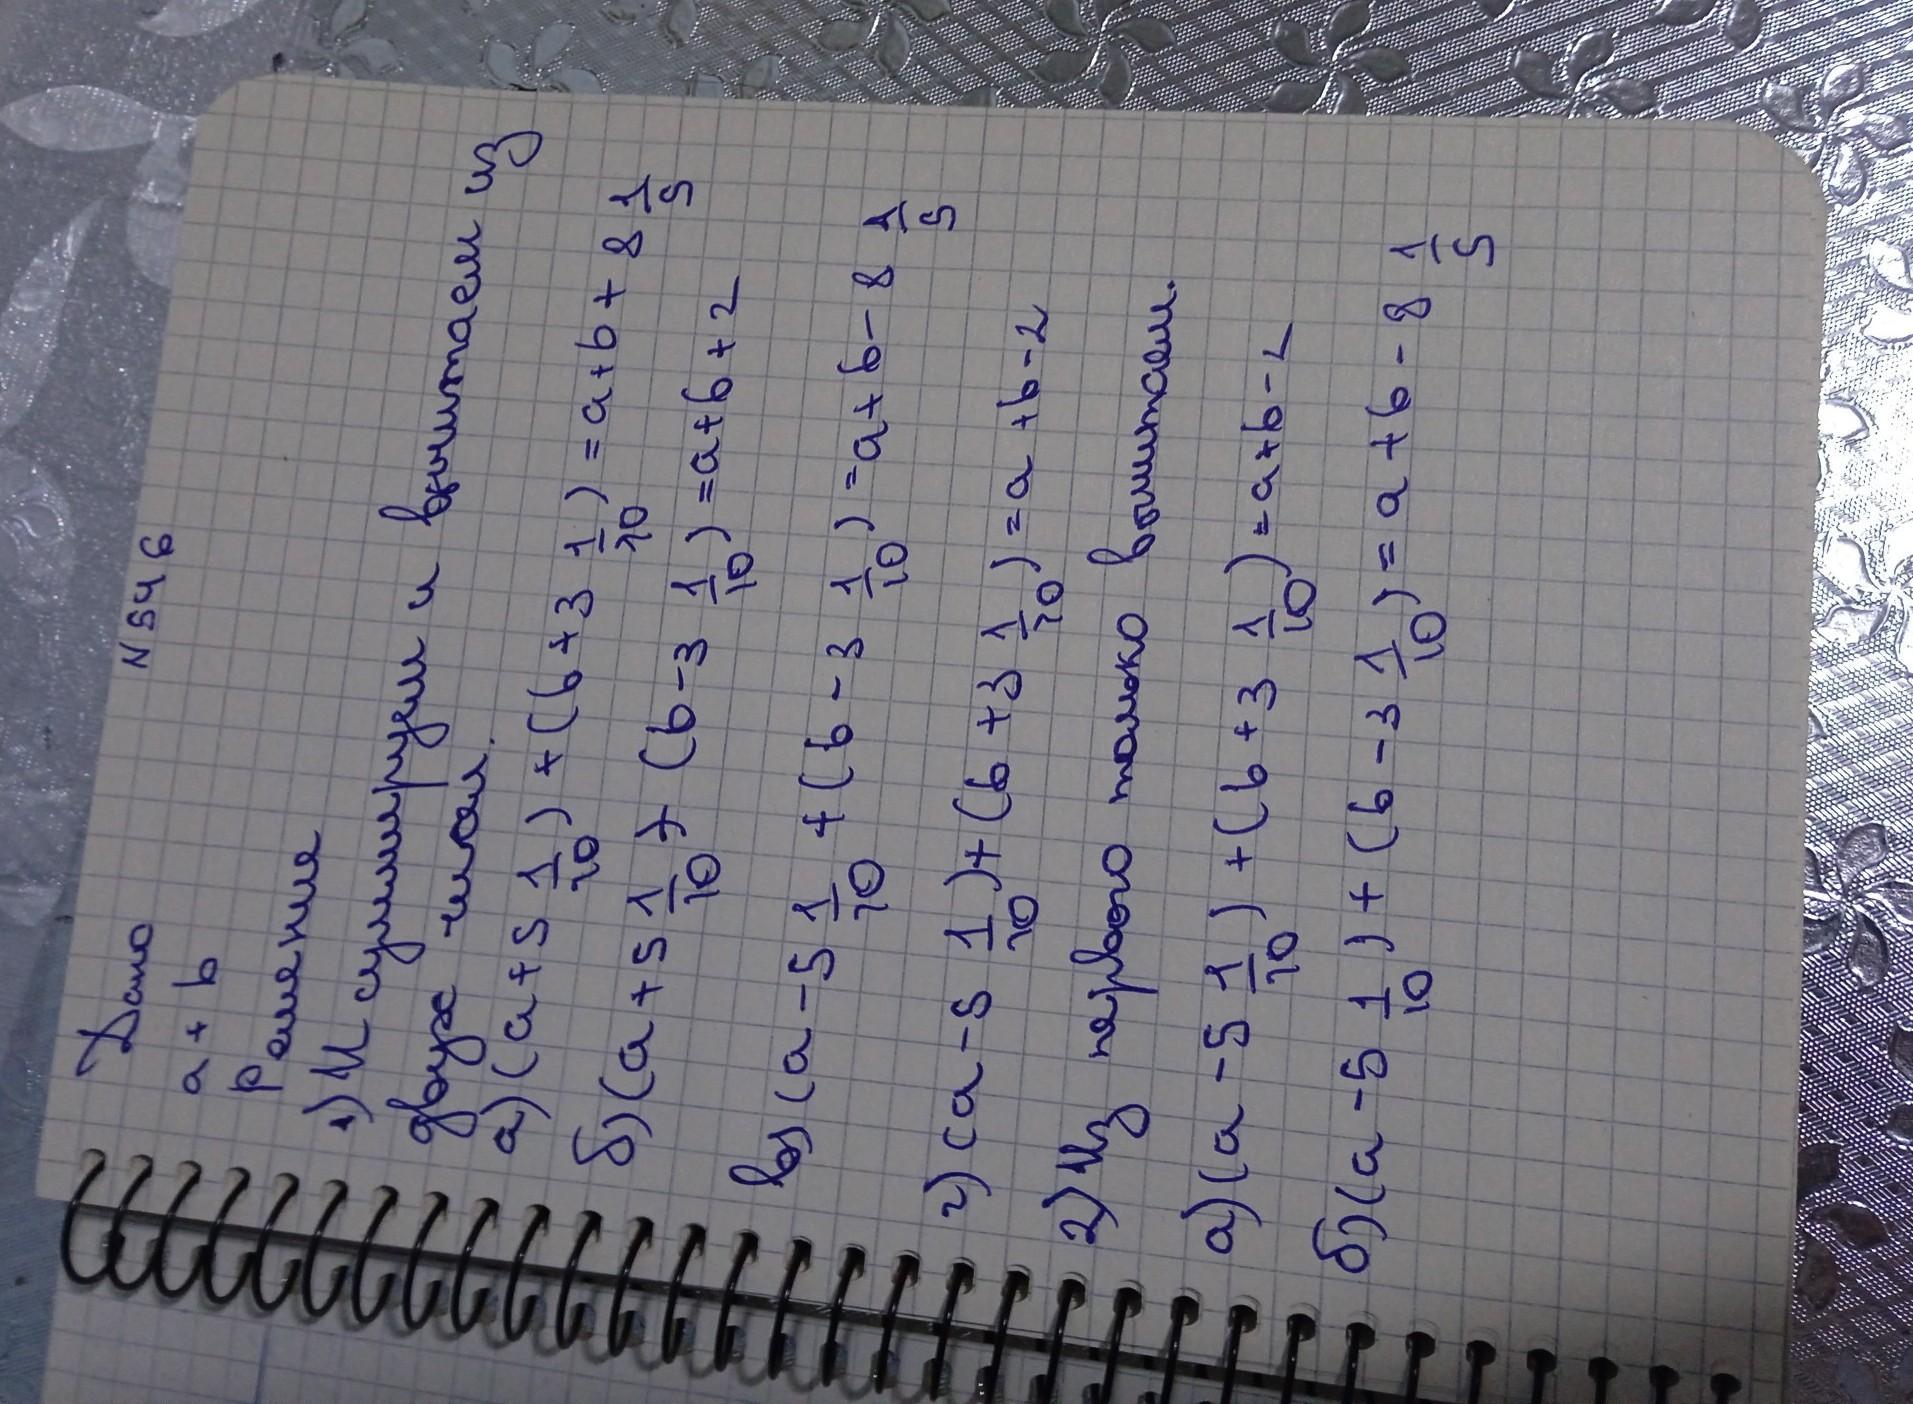 N 546
Дано
a + b
Решение
1) И сумирируем и вычитаем из
двух чисел.
а) (a + 5 1/10) + (b + 3 1/10) = a + b + 8 1/5
б) (a + 5 1/10) + (b - 3 1/10) = a + b + 2
в) (a - 5 1/10 + (b - 3 1/10) = a + b - 8 1/5
г) (a - 5 1/10) + (b + 3 1/10) = a + b - 2
2) Из первого только вычитаем.
а) (a - 5 1/10) + (b + 3 1/10) = a + b - 2
б) (a - 5 1/10) + (b - 3 1/10) = a + b - 8 1/5